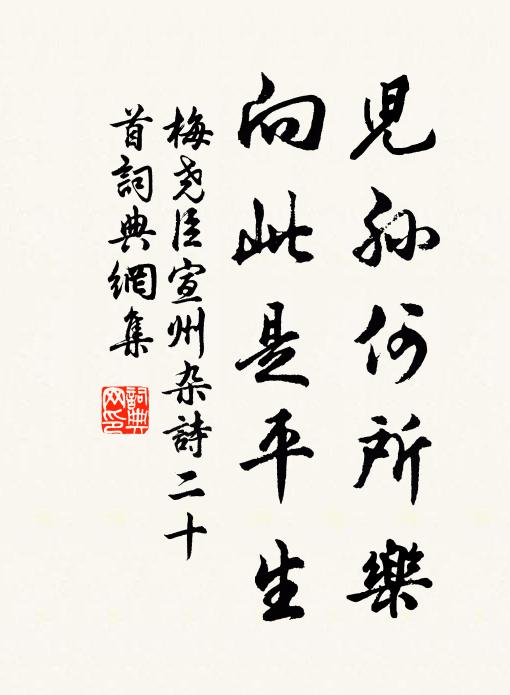 児孫何所樂
向此是平生
梅尧臣宣州杂詩二十
首詞典網集
詞典网印